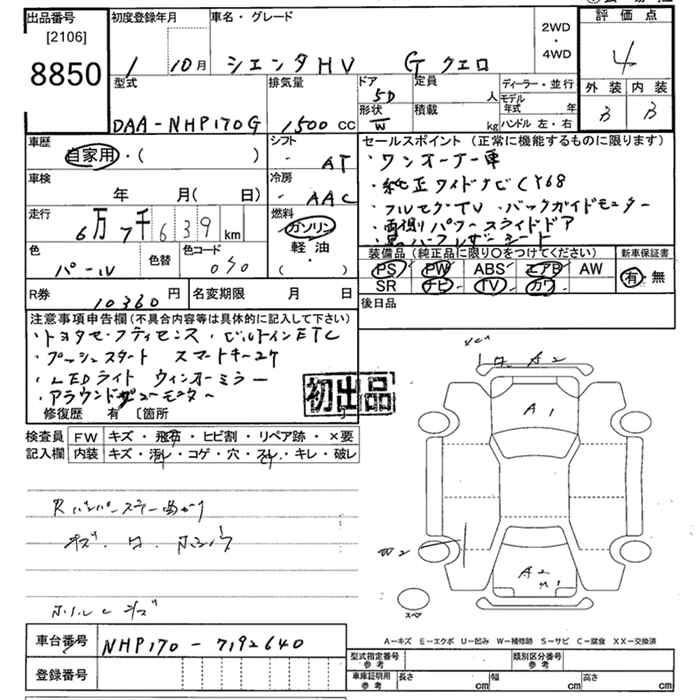 出品番号 初度登録年月 車名・グレード 2WD・4WD 評価点
[2106]
8850 1 10月 シエンタHV G クエロ 4
型式 排気量 ドア 5D 定員 人 ディーラー・並行 外装 内装
DAA-NHP170G 1500 cc 形状 W 積載 kg モデル年式 年 ハンドル 左・右 B B
車歴 シフト セールスポイント (正常に機能するものに限ります)
自家用・( ) AT ・ワンオーナー車
車検 冷房 ・純正ワイドナビCY68
年 月( 日) AAC ・フルセグTV ・バックガイドモニター
走行 燃料 ・両側パワースライドドア
6万7千639km ガソリン ・黒ハーフレザーシート
色 色替 色コード 軽・油
パール 070 ・( )
装備品 (純正品に限り○をつけてください) 新車保証書
PS PW ABS エアB AW 有・無
SR ナビ TV カワ
R券 10360円 名変期限 月 日 後日品
注意事項申告欄(不具合内容等は具体的に記入して下さい)
・トヨタセーフティセンス ・ビルトインETC
・プッシュスタート スマートキー2ケ
・LEDライト ウィンカーミラー
・アラウンドビューモニター
初出品
修復歴 有 〔箇所 〕
検査員 FW キズ・飛石・ヒビ割・リペア跡・×要
記入欄 内装 キズ・汚レ・コゲ・穴・スレ・キレ・破レ
キズ
A2
A1
W2
A2
スペア
A−キズ E−エクボ U−凹み W−補修跡 S−サビ C−腐食 XX−交換済
車台番号 NHP170-7192640
登録番号
型式指定番号 参考 類別区分番号 参考
車庫証明用 参考 長さ cm 幅 cm 高さ cm